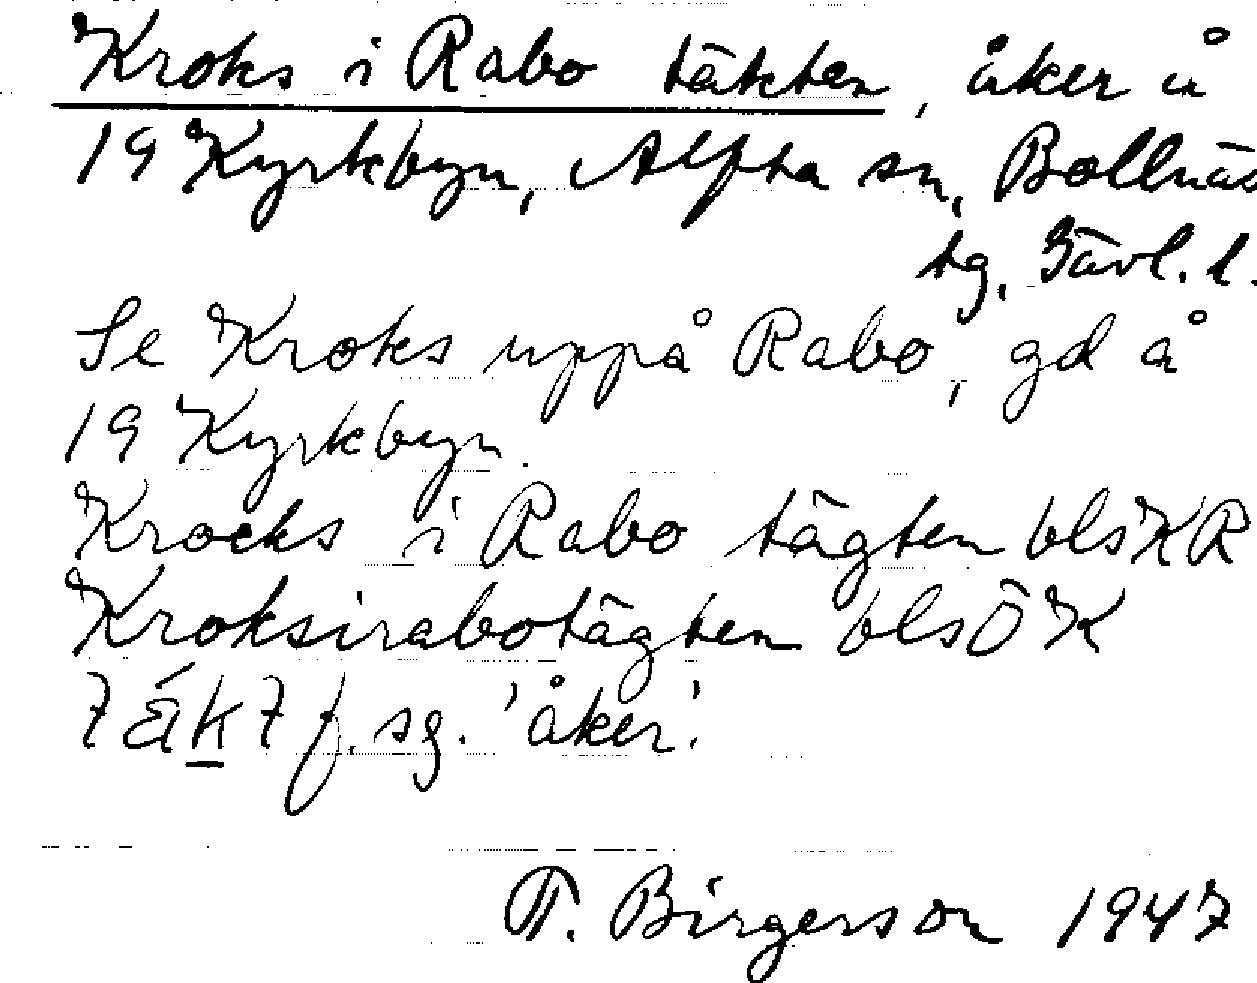 Kroks i Rabo täkten, åker å
19 Kyrkbyn, Alfta sn, Bollnäs
tg, Gävl. l.
Se Kroks uppå Rabo, gd å
19 Kyrkbyn.
Krocks i Rabo tägten bls KR
Kroksirabotägten bls ÖK
f. sg. 'åker'.
T. Birgerson 1947